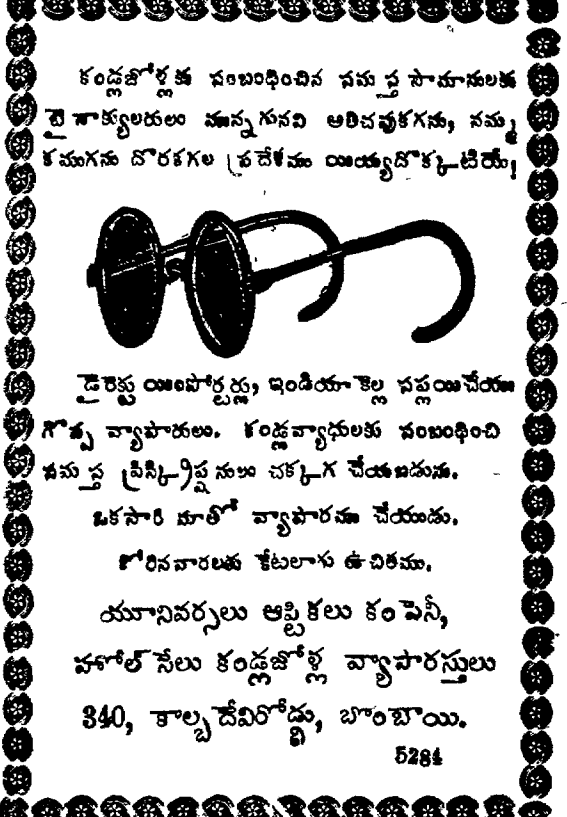 కండ్లజోళ్లకు సంబంధించిన సమస్త సామానులకు
బైనాక్యులరులు మున్నగునవి అరిచవుకగను, నమ్మ
కముగను దొరకగల ప్రదేశము యియ్యదొక్కటియే!
డైరెక్టు యింపోర్టర్లు, ఇండియా కెల్ల సప్లయిచేయు
గొప్ప వ్యాపారులు. కండ్లవ్యాధులకు సంబంధించి
సమస్త ప్రిస్క్రిప్షనులు చక్కగ చేయబడును.
ఒకసారి మాతో వ్యాపారము చేయుడు.
కోరినవారలకు కేటలాగు ఉచితము.
యూనివర్సలు ఆప్టికలు కంపెనీ,
హోల్ సేలు కండ్లజోళ్ల వ్యాపారస్తులు
340, కాల్బదేవిరోడ్డు, బొంబాయి.
5284